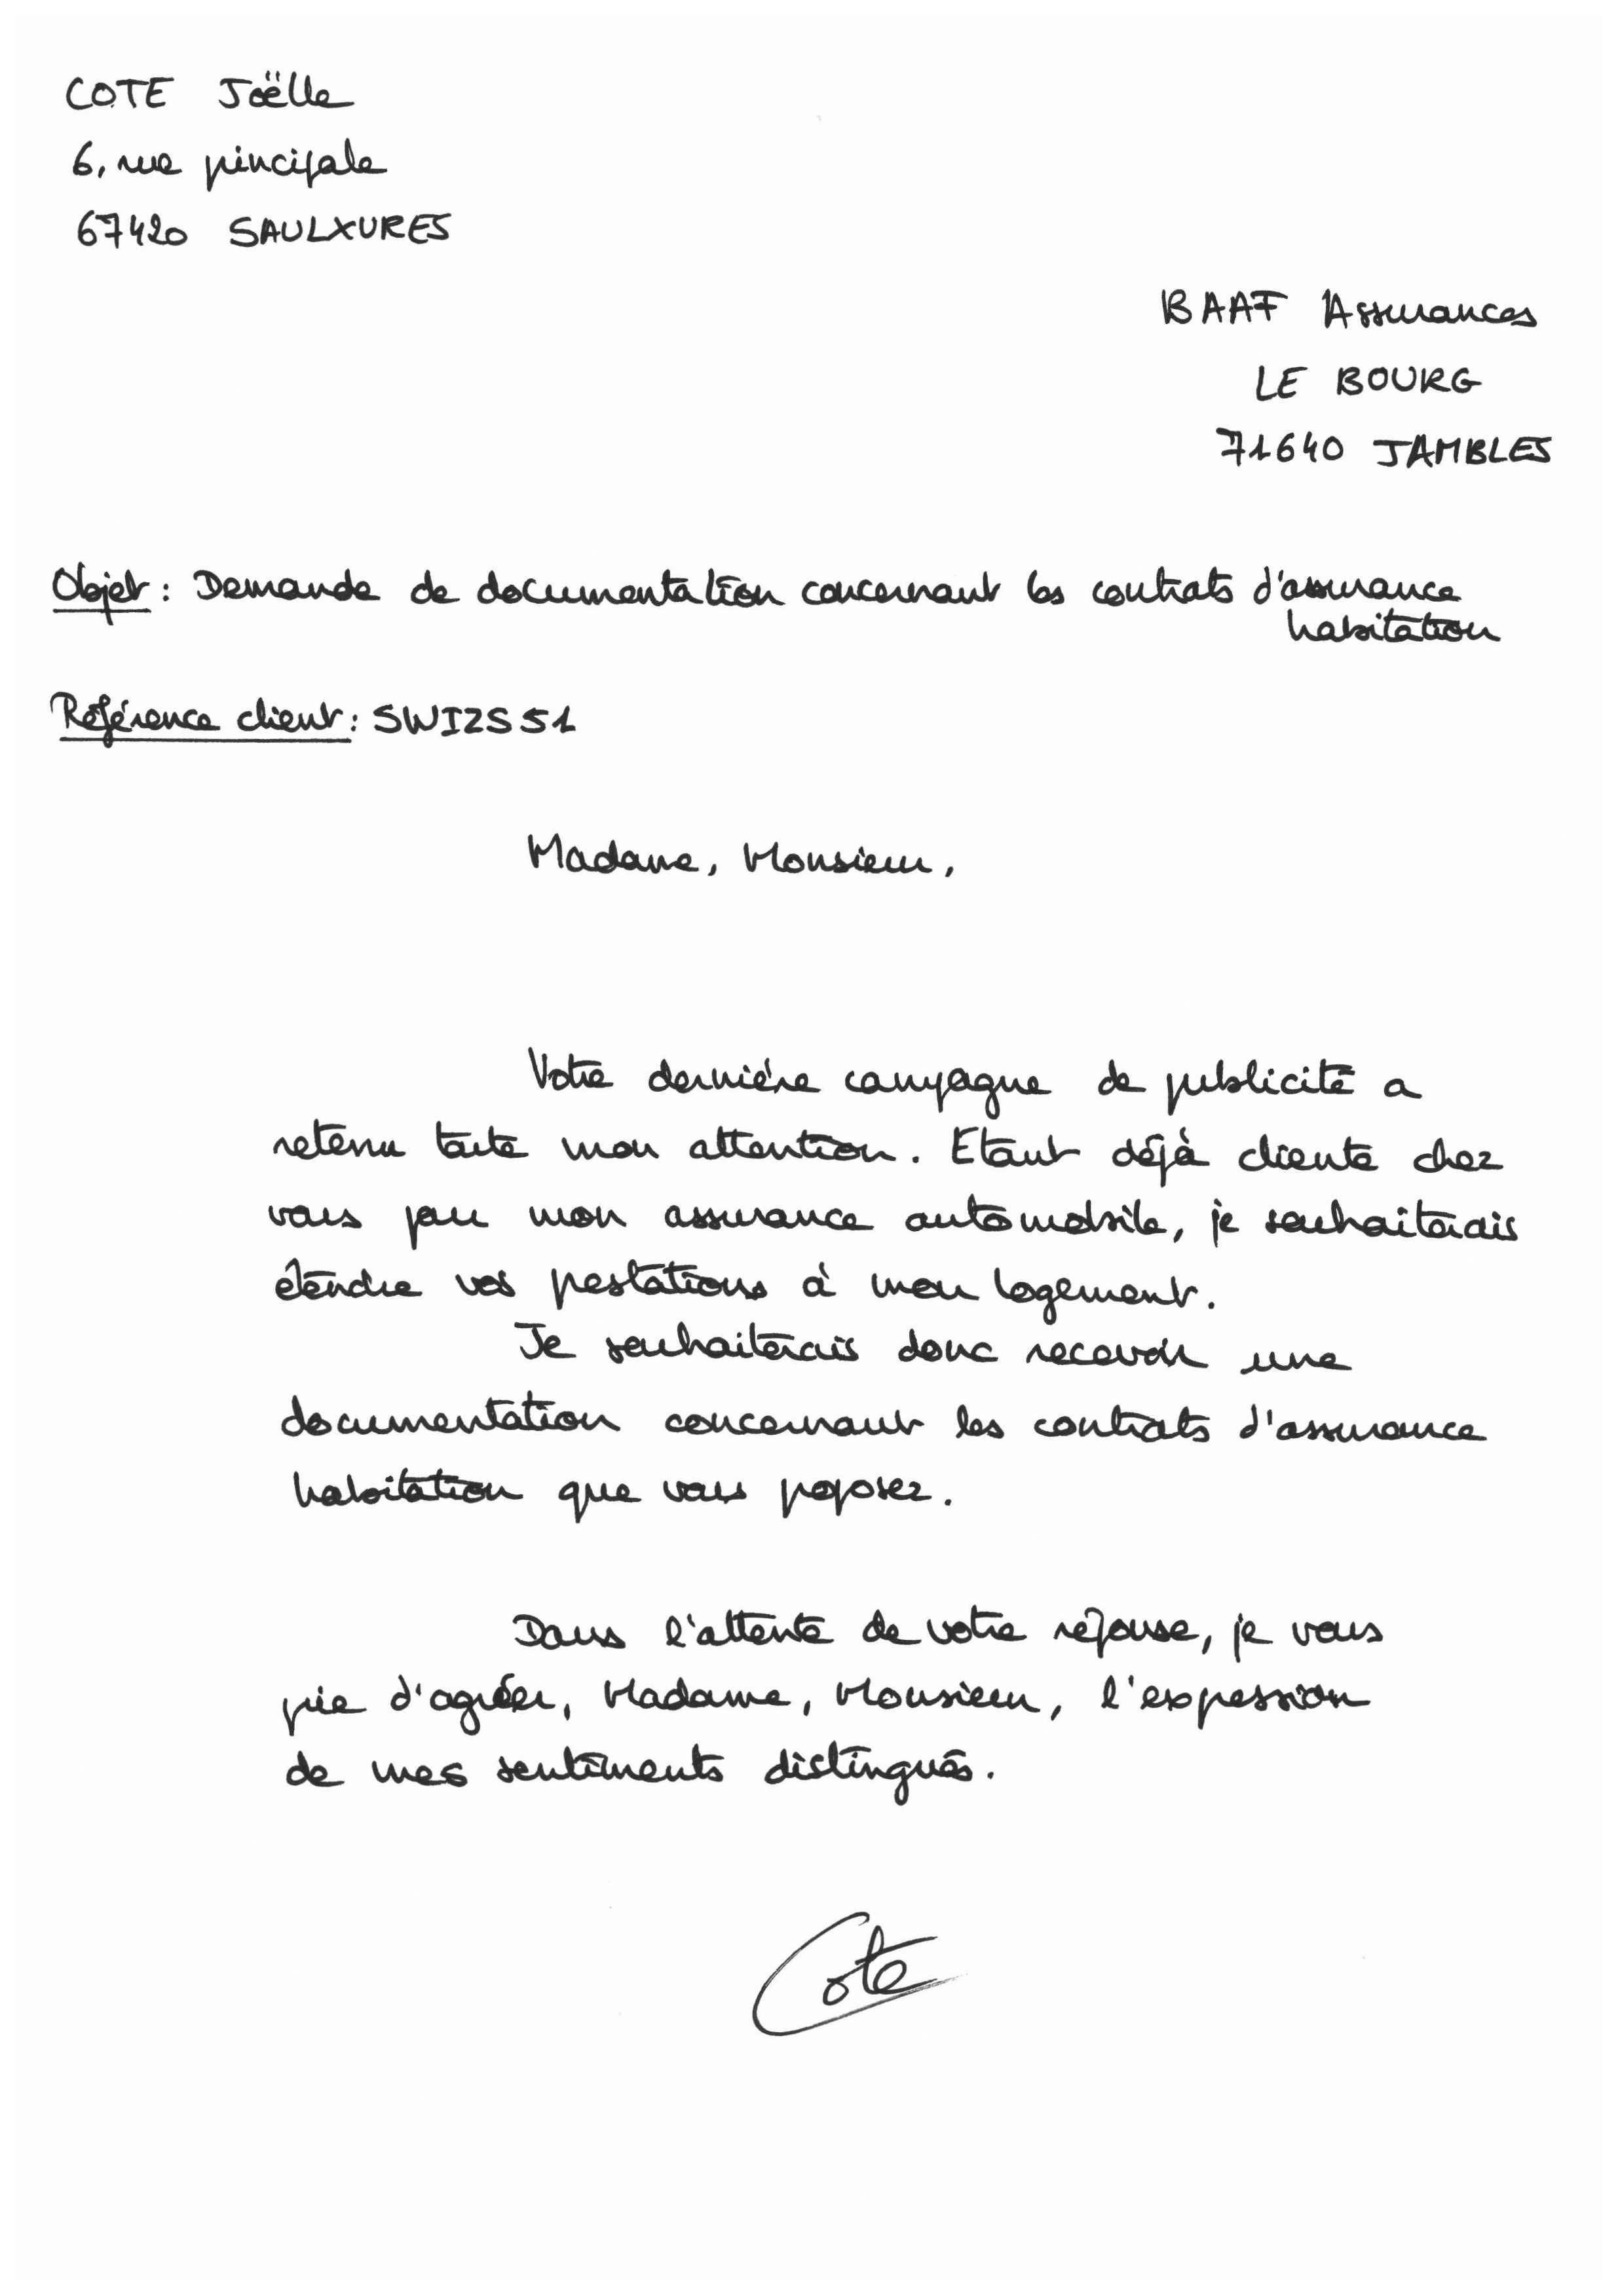 COTE Joëlle
6, rue principale
67420 SAULXURES
BAAF Assurances
LE BOURG
71640 JAMBLES
Objet : Demande de documentation concernant les contrats d'assurance
habitation
Référence client : SWIZS51
Madame, Monsieur,
Votre dernière campagne de publicité a
retenu toute mon attention. Etant déjà cliente chez
vous pour mon assurance automobile, je souhaiterais
étendre vos prestations à mon logement.
Je souhaiterais donc recevoir une
documentation concernant les contrats d'assurance
habitation que vous proposez.
Dans l'attente de votre réponse, je vous
prie d'agréer, Madame, Monsieur, l'expression
de mes sentiments distingués.
Cote